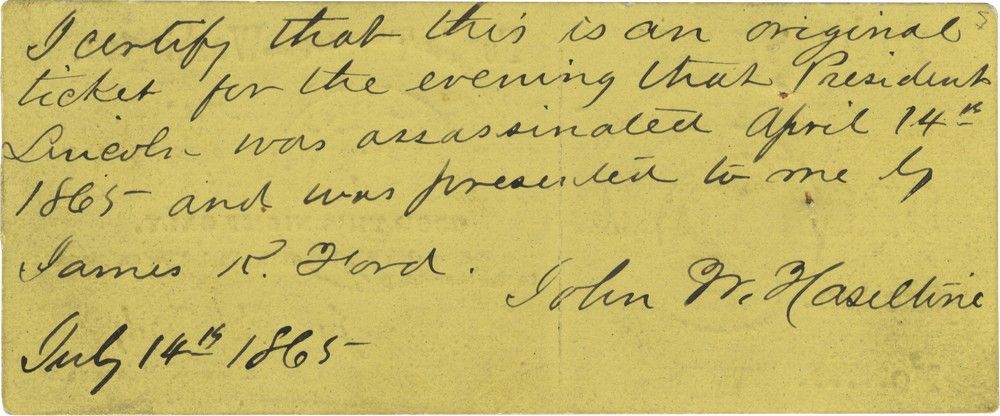 I certify that this is an original
ticket for the evening that President
Lincoln was assassinated April 14th
1865 and was presented to me by
James R. Ford.
John W. Haseltine
July 14th 1865